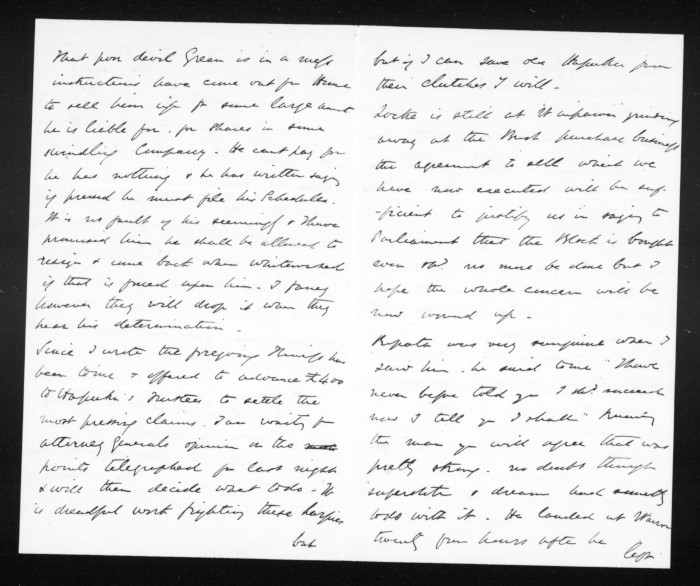 That poor devil Green is in a mess
instructions have come out from Home
to sell him up for some large amt
he is liable for - for shares in some
swindling Company. He cant pay for
he has nothing & he has written saying
if pressed he must file his Schedules.
It is no fault of his seemingly & I have
promised him he shall be allowed to
resign & come back when whitewashed
if that is forced upon him. I fancy
however they will drop it when they
hear his determination.
Since I wrote the foregoing has
been to me & offered to advance £400
to Hapuku's Trustees to settle the
most pressing claims. I am waiting for
attorney Generals opinion on the
points telegraphed for last night
& will then decide what to do - It
is dreadful work fighting these harpies
but
but if I can save old Hapuku from
their clutches I will -
Locke is still at Waipawa grinding
away at the Bush purchase business
the agreement to sell which we
have now executed will be suf-
-ficient to justify us in saying to
Parliament that the Block is bought
even shd no more be done but I
hope the whole concern will be
now wound up -
Ropata was very sanguine when I
saw him. he said to me "I have
never before told you I shd succeed
now I tell you I shall" Knowing
the man you will agree that was
pretty strong. no doubt though
superstitn & dreams had something
to do with it. He landed at
twenty four hours after he
left